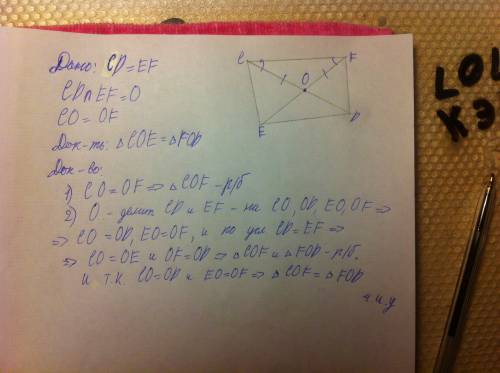 Дано: CD=EF
CD∩EF=O
CO=OF
Док-ть: △COE=△FOD
Док-во:
1) CO=OF⇒△COF-р/б
2) O - делит CD и EF - на CO, OD, EO, OF ⇒
⇒ CO=OD, EO=OF, и по усл CD=EF ⇒
⇒ CO=OE и OF=OD ⇒ △COF и △FOD-р/б.
и т.к. CO=OD и EO=OF ⇒ △COF=△FOD
ч.и.д
C
F
O
E
D
LOL
КЭ